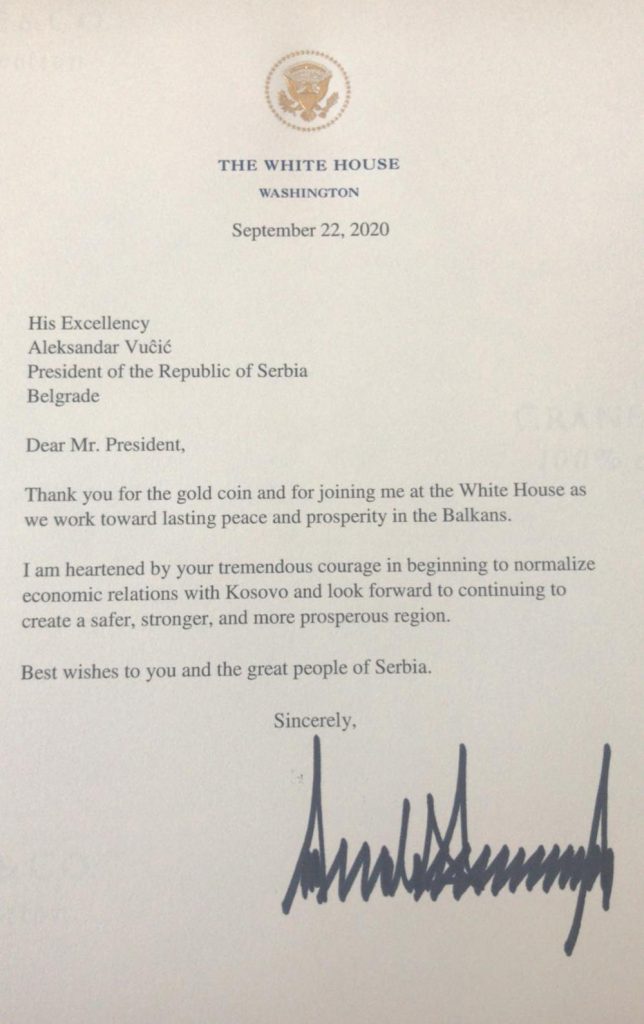 THE WHITE HOUSE
WASHINGTON
September 22, 2020
His Excellency
Aleksandar Vuĉić
President of the Republic of Serbia
Belgrade
Dear Mr. President,
Thank you for the gold coin and for joining me at the White House as
we work toward lasting peace and prosperity in the Balkans.
I am heartened by your tremendous courage in beginning to normalize
economic relations with Kosovo and look forward to continuing to
create a safer, stronger, and more prosperous region.
Best wishes to you and the great people of Serbia.
Sincerely,